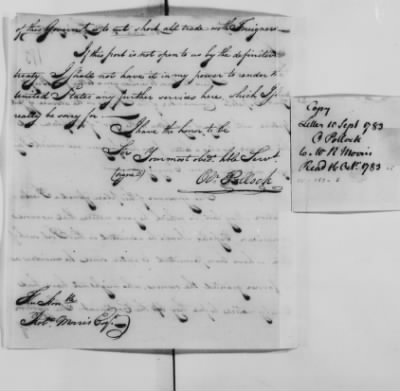 of this Governmt is to cut short all trade with Foreigners—
If this port is not open to us by the definitive
treaty I shall not have it in my power to render the
United States any further services here, which I should
really be sorry for—
I have the honor to be
Sir Your most obedt. hble Servt.
(signed)
Or. Pollock
The Honble
Robt. Morris Esqr.
Copy
Letter 10 Sept 1783
O Pollock
to Mr R Morris
Read 16 Oct. 1783